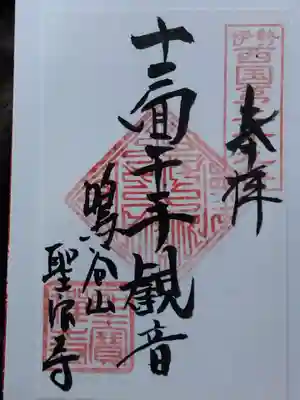 奉拝
伊勢
西国第
十一面千手観音
鳴谷山
聖宝寺